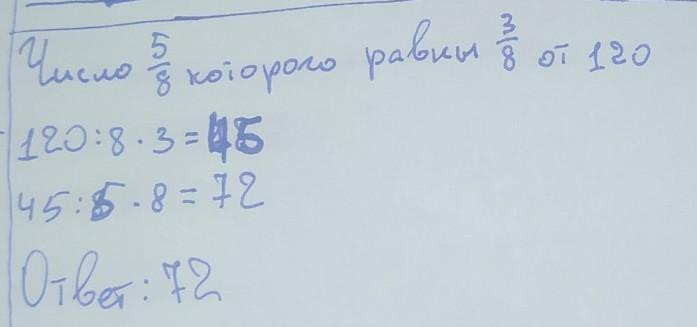 Число 5/8 которого равны 3/8 от 120
120:8·3=45
45:5·8=72
Ответ: 72